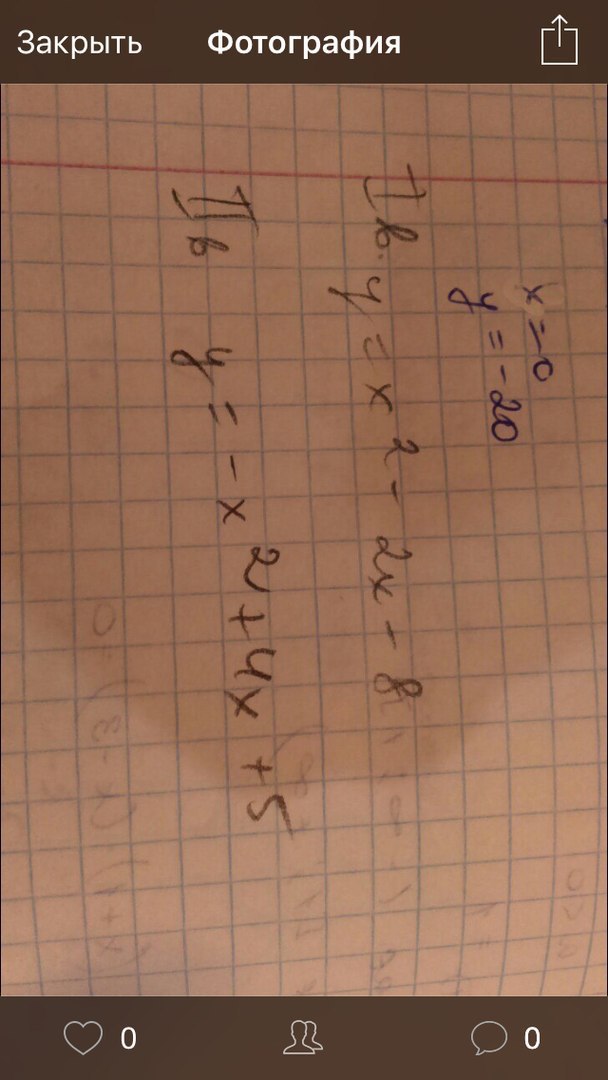 Закрыть
Фотография
x = 0
y = -20
I в. y = x² - 2x - 8
II в y = -x² + 4x + 5
0
0